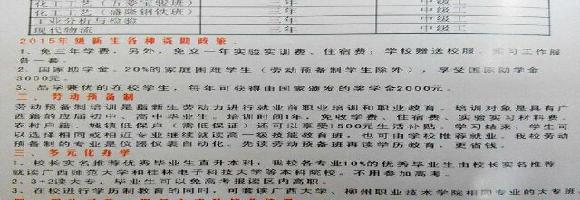 化工工艺（万菱宝骏班） 三年 中级工
化工工艺（盛隆钢铁班） 三年 中级工
工业分析与检验 三年 中级工
现代物流 三年 中级工
2015年级新生各种资助政策
1、免三年学费，另外，免交一年实验实训费、住宿费；学校赠送校服、实习工作服各一套。
2、国家助学金：20%的家庭困难学生（劳动预备制学生除外），享受国家助学金
3000元。
3、品学兼优的在校学生，每年可获得由国家颁发的奖学金2000元。
二、劳动预备制
劳动预备制培训是指新生劳动力进行就业前职业培训和职业教育。培训对象是具有广
西籍的应届初中、高中毕业生，培训时间1年，免收学费、住宿费、实验实习材料费，
农村户籍、城镇低保户（需低保证）还可以享受1500元生活补贴。学习结束，学生可
以选择相同或相近专业继续就读高一级技能教育班，也可由学校推荐就业。我校劳动
预备制的专业是仪器仪表自动化，先读劳动预备班再读学历教育，更省钱。
三、多元化办学
1、校长实名推荐优秀毕业生直升本科。我校名专业10%的优秀毕业生由校长实名推荐
就读广西师范大学和桂林电子科技大学等本科院校。不用参加高考。
2、3+2读大专。毕业生可以免高考报读区内高职。
3、在校进行学历制教育的同时，可套读广西大学、柳州职业技术学院相同专业的大专班